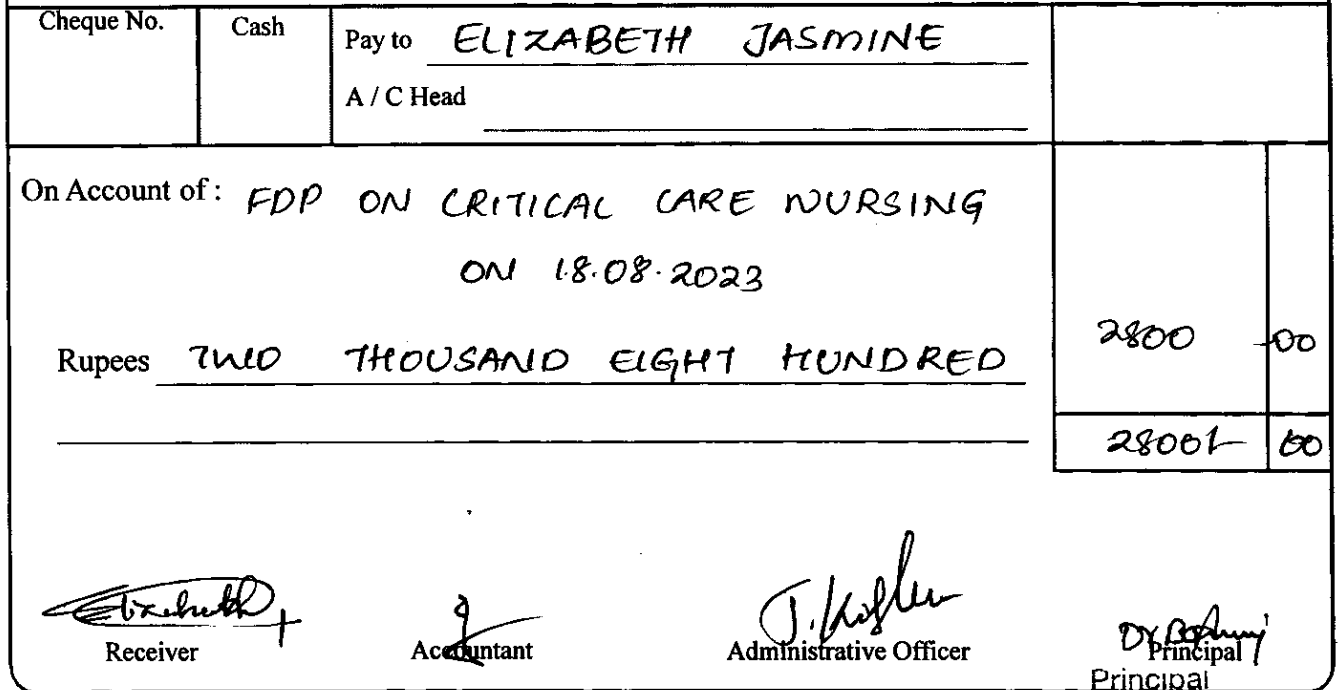 Cheque No. Cash Pay to ELIZABETH JASMINE
A / C Head
On Account of : FDP ON CRITICAL CARE NURSING
ON 18.08.2023
2800 00
Rupees TWO THOUSAND EIGHT HUNDRED
2800/- 00
Elizabeth
Receiver Accountant Administrative Officer Principal
Principal